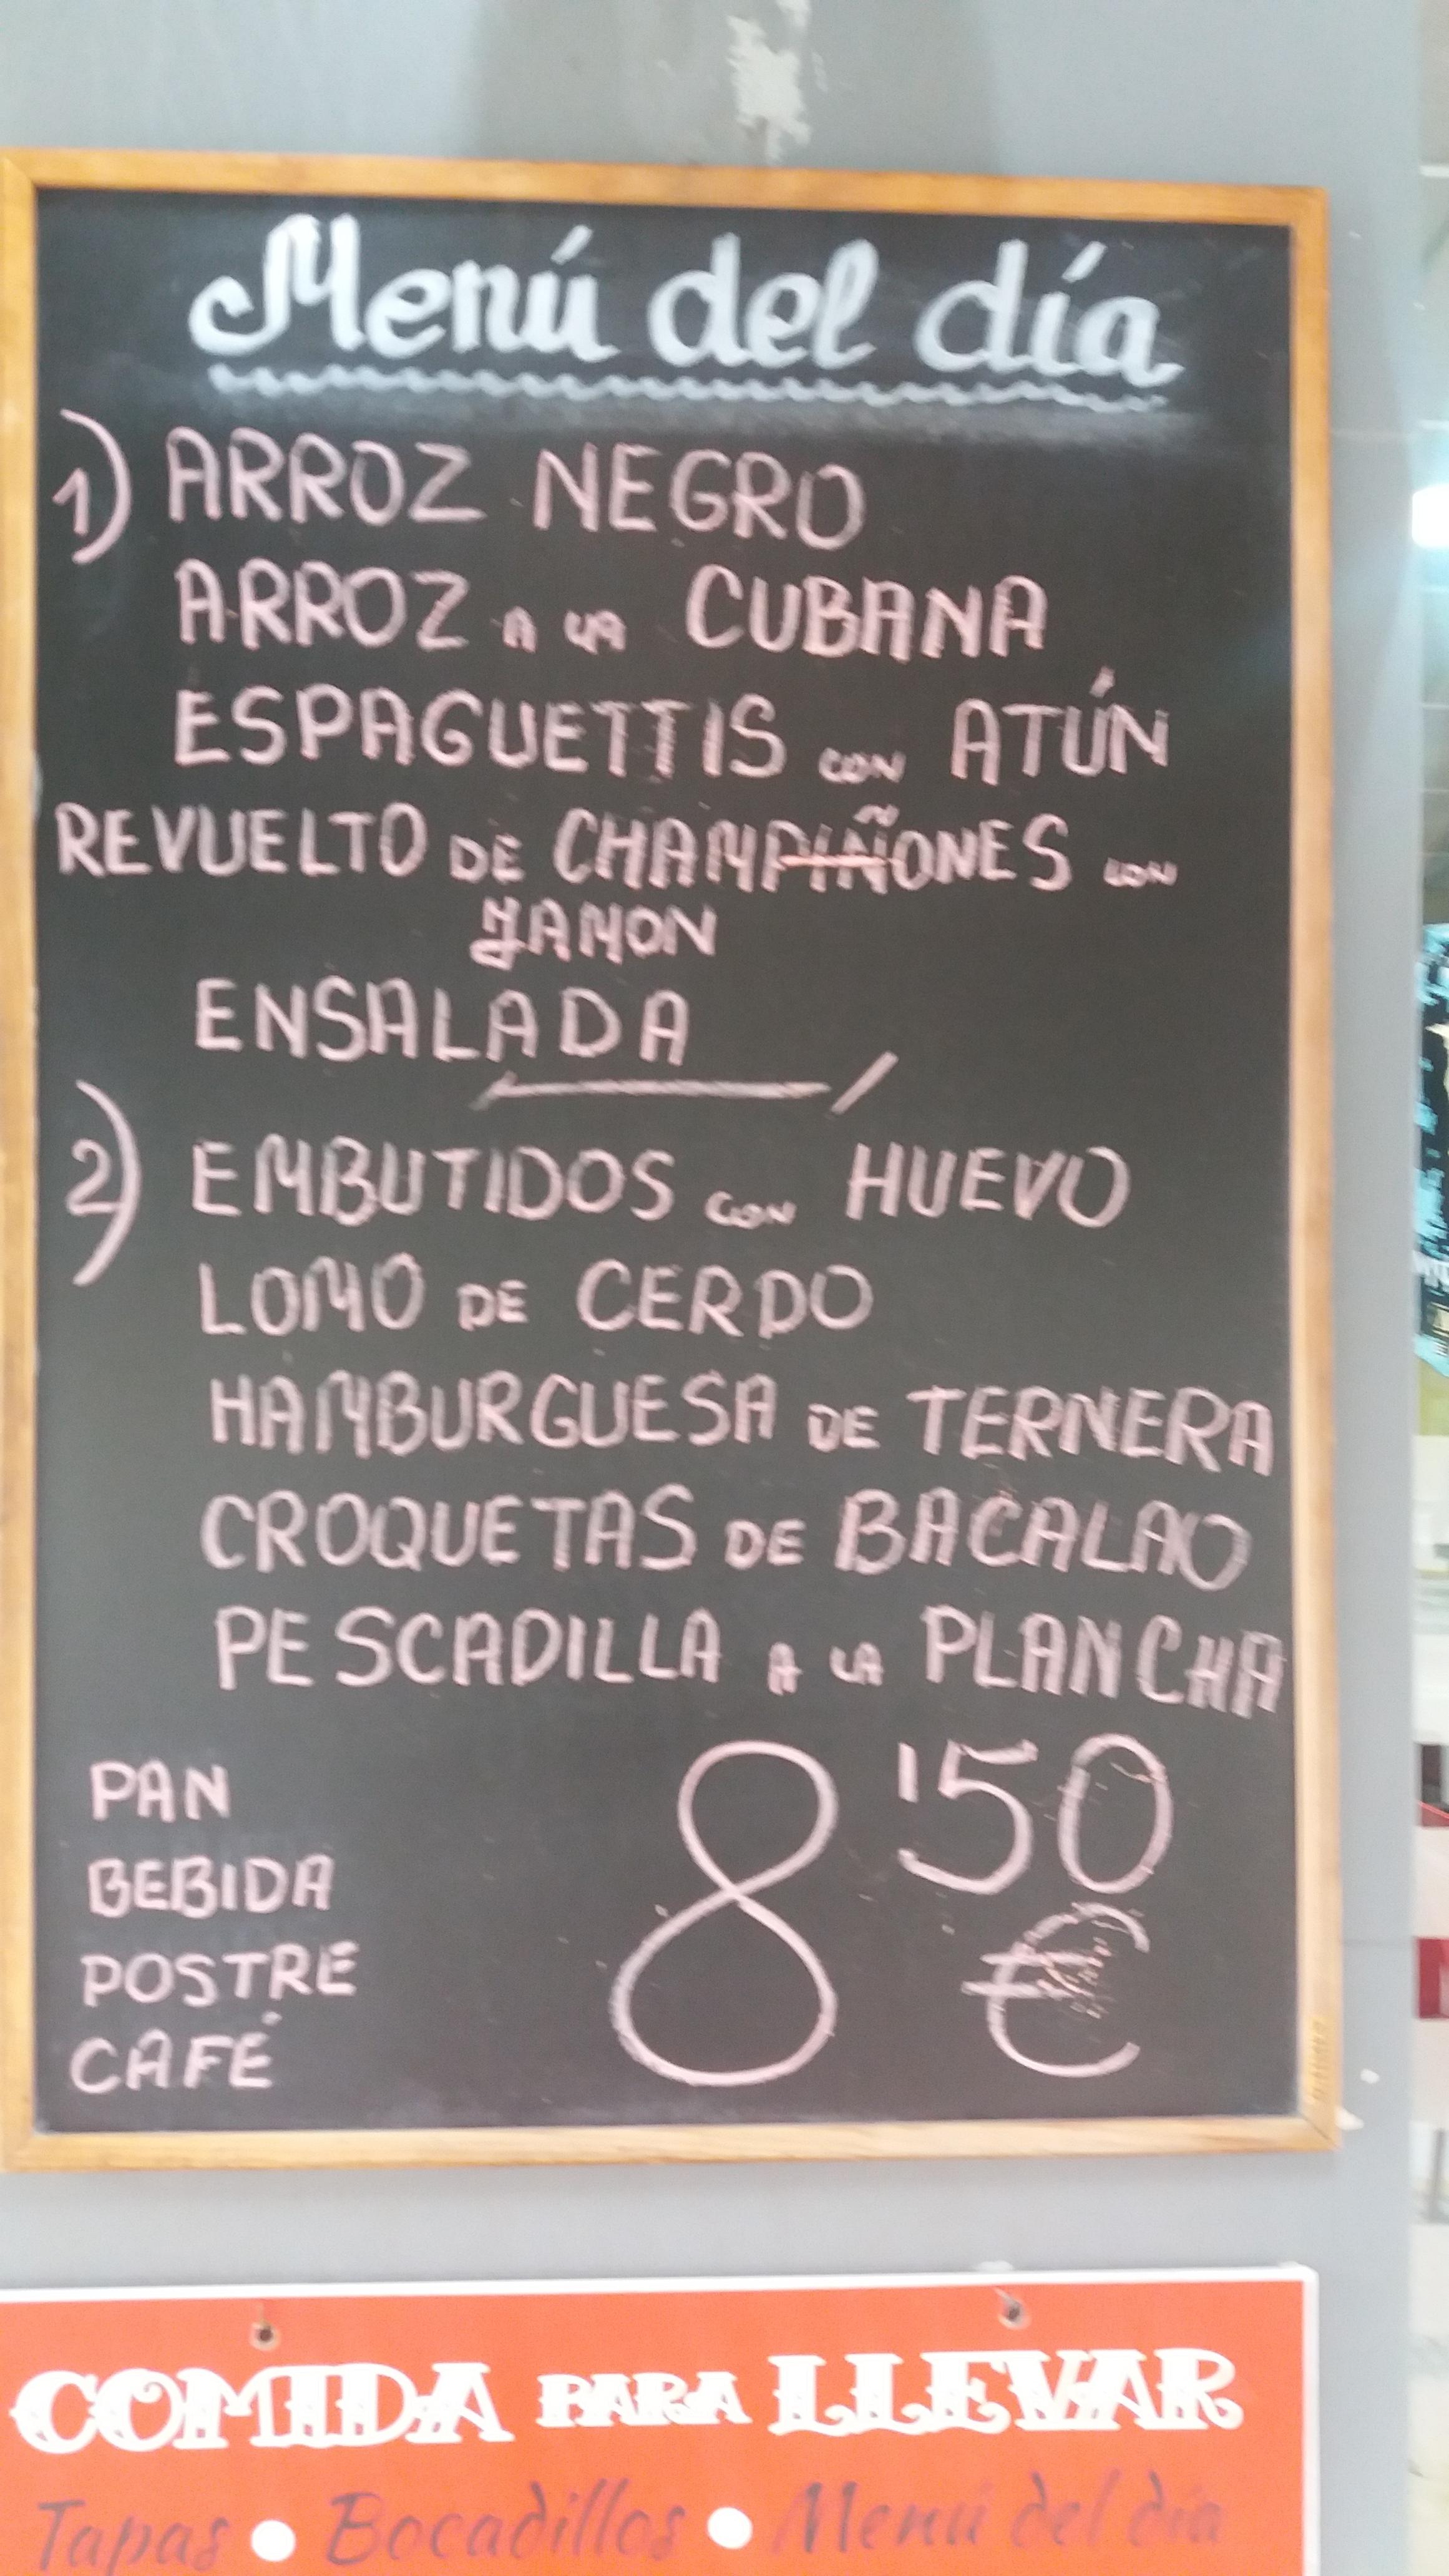 Menú del día
1) ARROZ NEGRO
ARROZ A LA CUBANA
ESPAGUETTIS CON ATÚN
REVUELTO DE CHAMPIÑONES CON
JAMON
ENSALADA
2) EMBUTIDOS CON HUEVO
LOMO DE CERDO
HAMBURGUESA DE TERNERA
CROQUETAS DE BACALAO
PESCADILLA A LA PLANCHA
PAN
BEBIDA
POSTRE
CAFÉ
8'50
€
COMIDA PARA LLEVAR
Tapas • Bocadillos • Menú del día